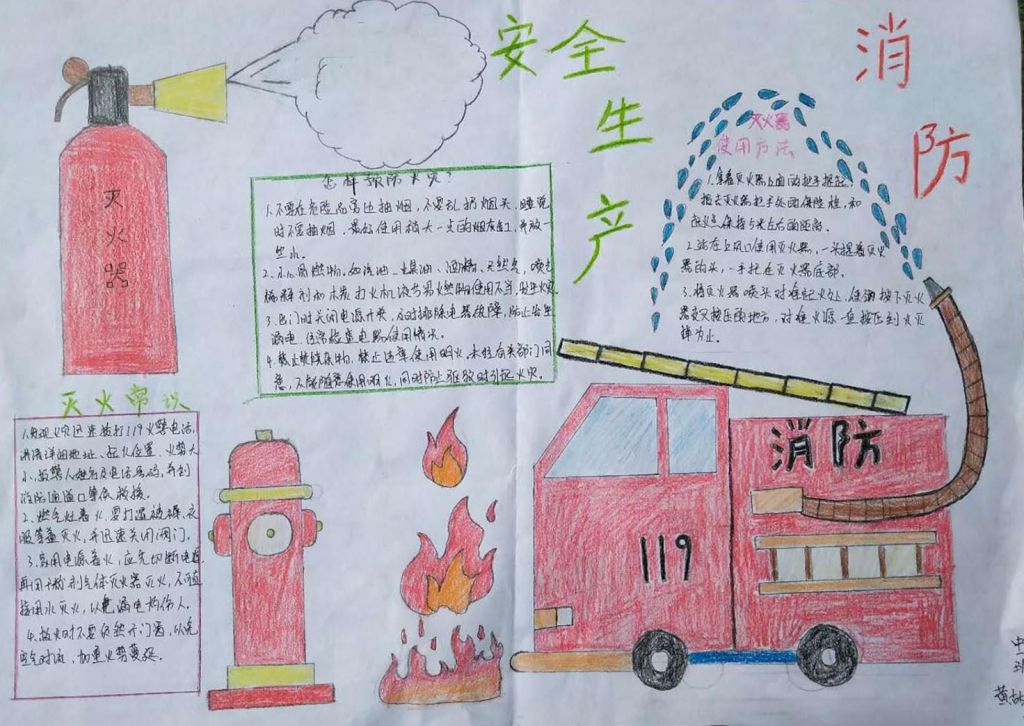 安全
生
产
消
防
灭
火
器
怎样预防火灾?
1.不要在危险品旁边抽烟,不要乱扔烟头,睡觉
时不要抽烟,最好使用稍大一点的烟灰缸,并放一
些水。
2.小心易燃物,如汽油、煤油、酒精、天然气、喷
稀释剂打火机液等易燃物使用不当,发生火灾
3.出门时关闭电源开关,及时排除电器故障,防止发生
漏电,经常检查电器使用情况。
4.禁止焚烧杂物,禁止违章使用明火,未经有关部门同
意,不能随意使用明火,同时防止取暖时引起火灾。
灭火器
使用方法
1.拿着灭火器上面的把手提起,
拔去灭火器把手处的保险栓,和
起火点保持5米左右的距离。
2.站在上风口使用灭火器,一手提着灭火
器的头,一手托在灭火器底部。
3.将灭火器喷头对准起火处,使劲按下灭火
器交叉按压的地方,对准火源一直按压到火灭
掉为止。
灭火常识
1.发现火灾迅速拨打119火警电话,
讲清详细地址、起火位置、火势大
小、报警人姓名及电话号码,并到
消防通道口等候救援。
2.燃气灶着火,要打湿被褥、衣
服等盖灭火,并迅速关闭阀门。
3.家用电源着火,应先切断电源
再用干粉剂气体灭火器灭火,不可直
接用水灭火,以免漏电构伤人。
4.救火时不要贸然开门窗,以免
空气对流,加重火势蔓延。
消防
119
中
班
黄